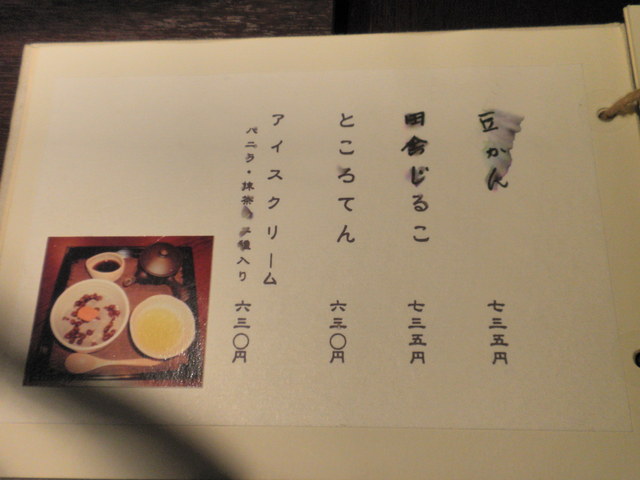 豆かん 七三五円
田舎じるこ 七三五円
ところてん 六三〇円
アイスクリーム 六三〇円
バニラ・抹茶 二種入り